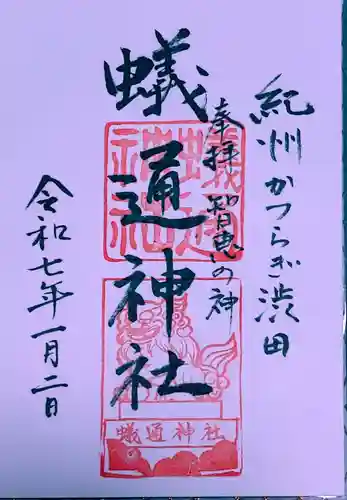 紀州かつらぎ渋田
奉拝 智恵の神
蟻通神社
令和七年一月二日
蟻通神社
蟻通神社